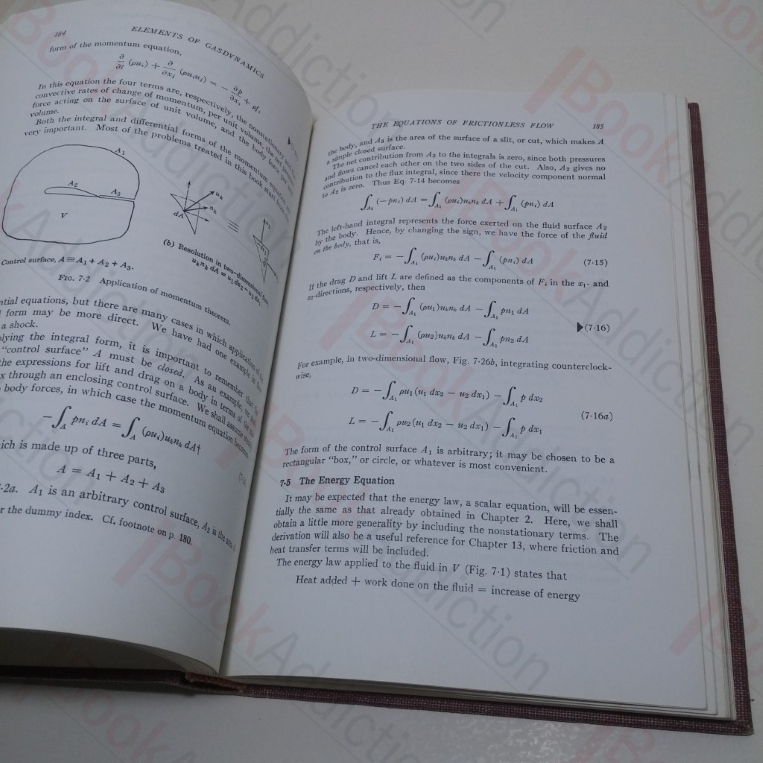 184
ELEMENTS OF GASDYNAMICS
form of the momentum equation,
∂/∂t (ρuᵢ) + ∂/∂xⱼ (ρuᵢuⱼ) = − ∂p/∂xᵢ + ρfᵢ
In this equation the four terms are, respectively, the nonstationary and
convective rates of change of momentum, per unit volume, the
force acting on the surface of unit volume, and the body force
volume.
Both the integral and differential forms of the momentum equation
very important. Most of the problems treated in this book
A₁
A₂
A₃
V
dA
uₖ
nₖ
Control surface, A = A₁ + A₂ + A₃.
(b) Resolution in two-dimensional flow,
uₖnₖ dA = u₁ dx₂ − u₂ dx₁
FIG. 7·2 Application of momentum theorem.
tial equations, but there are many cases in which application of the
form may be more direct. We have had one example in the
a shock.
lying the integral form, it is important to remember that the
"control surface" A must be closed. As an example, we
the expressions for lift and drag on a body in terms of the
x through an enclosing control surface. We shall assume
body forces, in which case the momentum equation
−∫_A pnᵢ dA = ∫_A (ρuᵢ)uₖnₖ dA†
ich is made up of three parts,
A = A₁ + A₂ + A₃
·2a. A₁ is an arbitrary control surface, A₂ is the
r the dummy index. Cf. footnote on p. 180.
THE EQUATIONS OF FRICTIONLESS FLOW 185
the body, and A₃ is the area of the surface of a slit, or cut, which makes A
a simple closed surface.
The net contribution from A₃ to the integrals is zero, since both pressures
and flows cancel each other on the two sides of the cut. Also, A₂ gives no
contribution to the flux integral, since there the velocity component normal
to A₂ is zero. Thus Eq. 7·14 becomes
∫_A₂ (−pnᵢ) dA = ∫_A₁ (ρuᵢ)uₖnₖ dA + ∫_A₁ (pnᵢ) dA
The left-hand integral represents the force exerted on the fluid surface A₂
by the body. Hence, by changing the sign, we have the force of the fluid
on the body, that is,
Fᵢ = −∫_A₁ (ρuᵢ)uₖnₖ dA − ∫_A₁ (pnᵢ) dA (7·15)
If the drag D and lift L are defined as the components of Fᵢ in the x₁- and
x₂-directions, respectively, then
D = −∫_A₁ (ρu₁)uₖnₖ dA − ∫_A₁ pn₁ dA
▶(7·16)
L = −∫_A₁ (ρu₂)uₖnₖ dA − ∫_A₁ pn₂ dA
For example, in two-dimensional flow, Fig. 7·2b, integrating counterclock-
wise,
D = −∫_A₁ ρu₁(u₁ dx₂ − u₂ dx₁) − ∫_A₁ p dx₂
(7·16a)
L = −∫_A₁ ρu₂(u₁ dx₂ − u₂ dx₁) − ∫_A₁ p dx₁
The form of the control surface A₁ is arbitrary; it may be chosen to be a
rectangular "box," or circle, or whatever is most convenient.
7·5 The Energy Equation
It may be expected that the energy law, a scalar equation, will be essen-
tially the same as that already obtained in Chapter 2. Here, we shall
obtain a little more generality by including the nonstationary terms. The
derivation will also be a useful reference for Chapter 13, where friction and
heat transfer terms will be included.
The energy law applied to the fluid in V (Fig. 7·1) states that
Heat added + work done on the fluid = increase of energy
BookAddiction